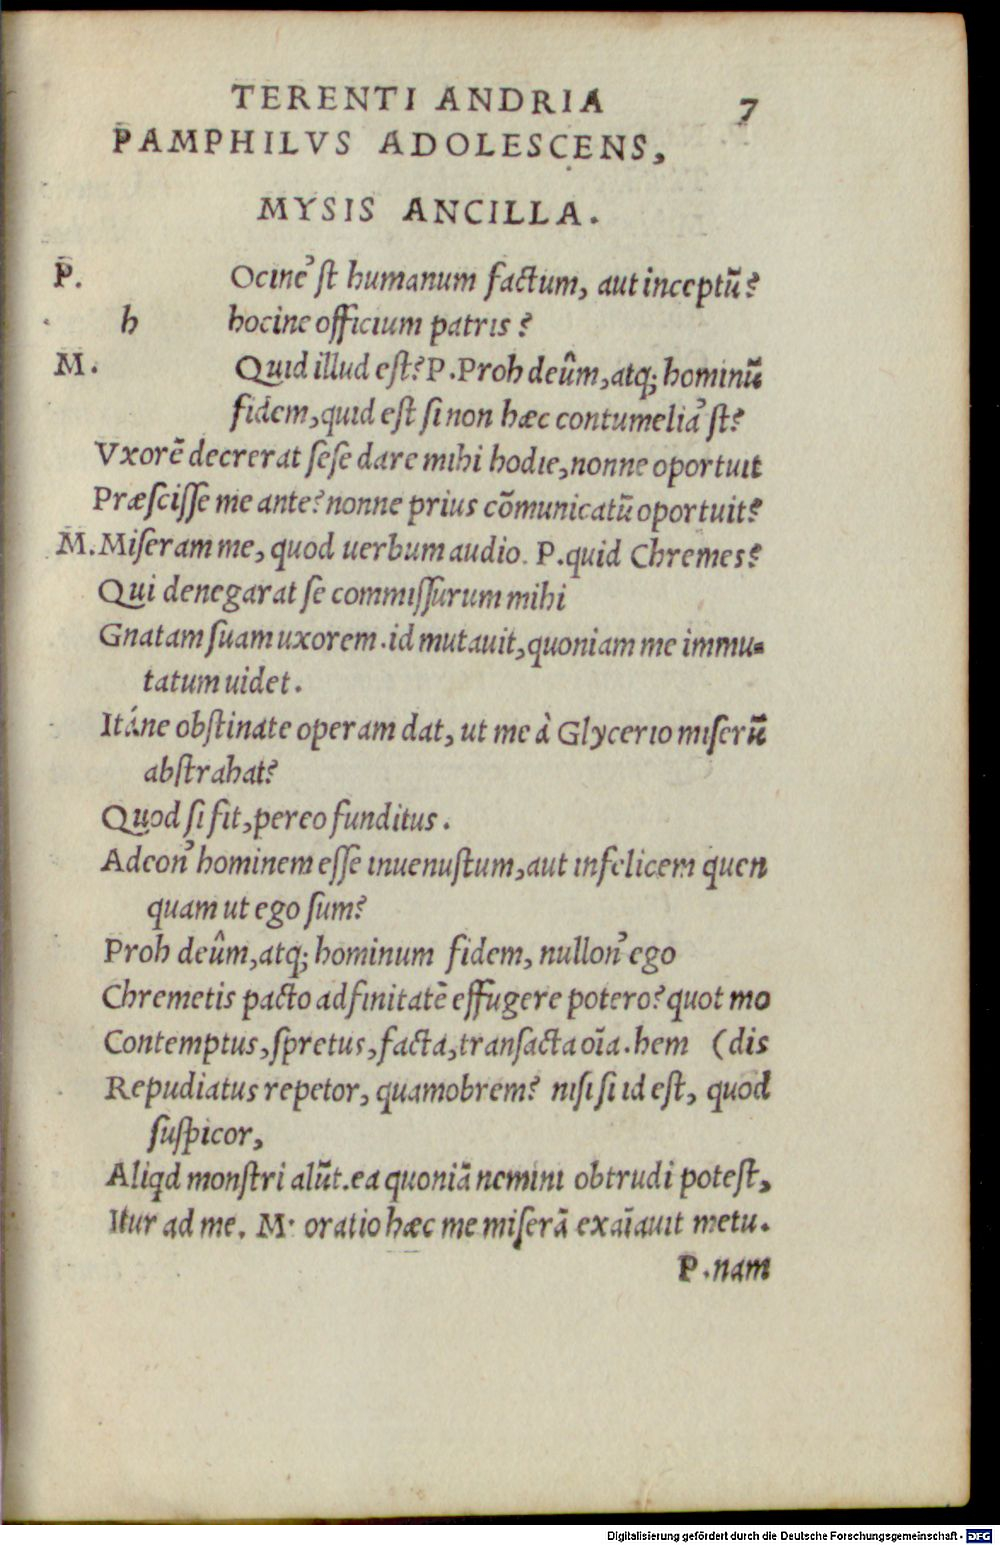 TERENTI ANDRIA 7
PAMPHILVS ADOLESCENS,
MYSIS ANCILLA.
P. Ocine’ſt humanum factum, aut inceptū?
h hocine officium patris?
M. Quid illud eſt? P. Proh deûm, atq; hominū
fidem, quid eſt ſi non hæc contumelia’ſt?
Vxorē decrerat ſeſe dare mihi hodie, nonne oportuit
Præſciſſe me ante? nonne prius cōmunicatū oportuit?
M. Miſeram me, quod uerbum audio. P. quid Chremes?
Qui denegarat ſe commiſſurum mihi
Gnatam ſuam uxorem. id mutauit, quoniam me immu-
tatum uidet.
Itáne obſtinate operam dat, ut me à Glycerio miſerū
abſtrahat?
Quod ſi fit, pereo funditus.
Adeon’ hominem eſſe inuenuſtum, aut infelicem quen
quam ut ego ſum?
Proh deûm, atq; hominum fidem, nullon’ ego
Chremetis pacto adfinitatē effugere potero? quot mo
Contemptus, ſpretus, facta, tranſacta oīa. hem (dis
Repudiatus repetor, quamobrem? niſi ſi id eſt, quod
ſuſpicor,
Aliqd monſtri alūt. ea quoniā nemini obtrudi poteſt,
Itur ad me. M. oratio hæc me miſerā exaīauit metu.
P. nam
Digitalisierung gefördert durch die Deutsche Forschungsgemeinschaft - DFG